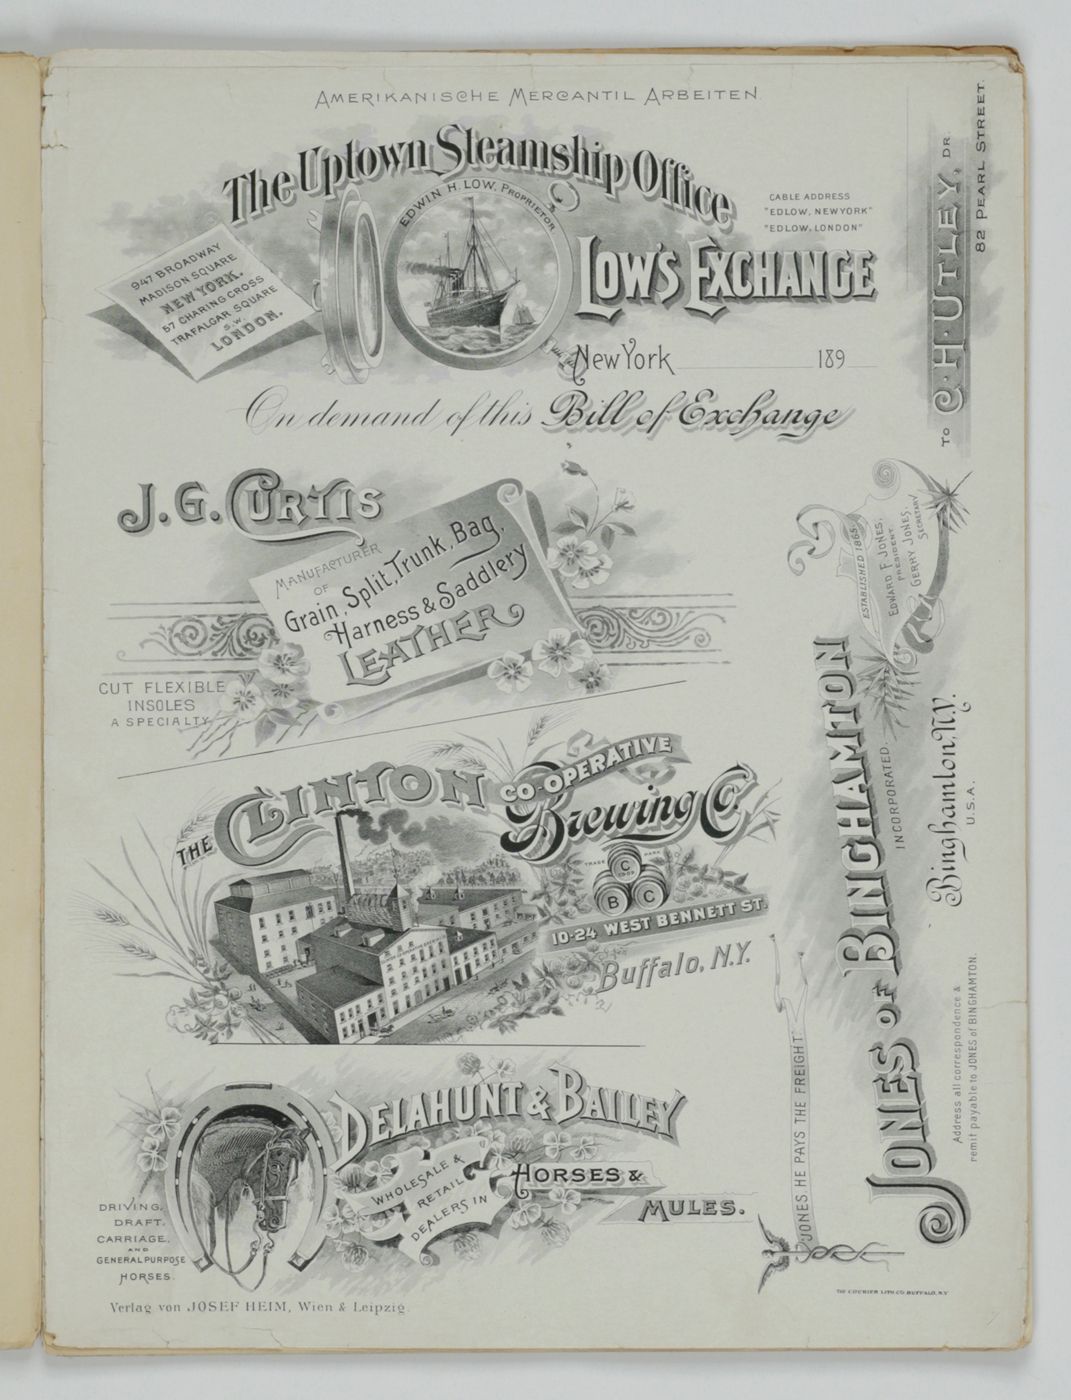 AMERIKANISCHE MERCANTIL ARBEITEN
The Uptown Steamship Office
EDWIN H. LOW, PROPRIETOR
CABLE ADDRESS
"EDLOW, NEWYORK"
"EDLOW, LONDON"
947 BROADWAY
MADISON SQUARE
NEW YORK.
57 CHARING CROSS
TRAFALGAR SQUARE
S.W.
LONDON.
LOW'S EXCHANGE
New York 189
On demand of this Bill of Exchange
TO C.H. UTLEY, DR.
82 PEARL STREET.
J.G. CURTIS
MANUFACTURER
OF
Grain, Split, Trunk, Bag,
Harness & Saddlery
LEATHER
CUT FLEXIBLE
INSOLES
A SPECIALTY
THE CLINTON CO-OPERATIVE
Brewing Co.
TRADE MARK
C
CO-OP
B C
10-24 WEST BENNETT ST.
Buffalo, N.Y.
DELAHUNT & BAILEY
WHOLESALE &
RETAIL
DEALERS IN
HORSES &
MULES.
DRIVING,
DRAFT,
CARRIAGE,
AND
GENERAL PURPOSE
HORSES.
ESTABLISHED 1865
EDWARD F. JONES,
PRESIDENT.
GERRY JONES,
SECRETARY
JONES OF BINGHAMTON
INCORPORATED.
Binghamton, N.Y.
U.S.A.
Address all correspondence &
remit payable to JONES of BINGHAMTON.
JONES HE PAYS THE FREIGHT
THE COURIER LITH. CO. BUFFALO, N.Y.
Verlag von JOSEF HEIM, Wien & Leipzig.